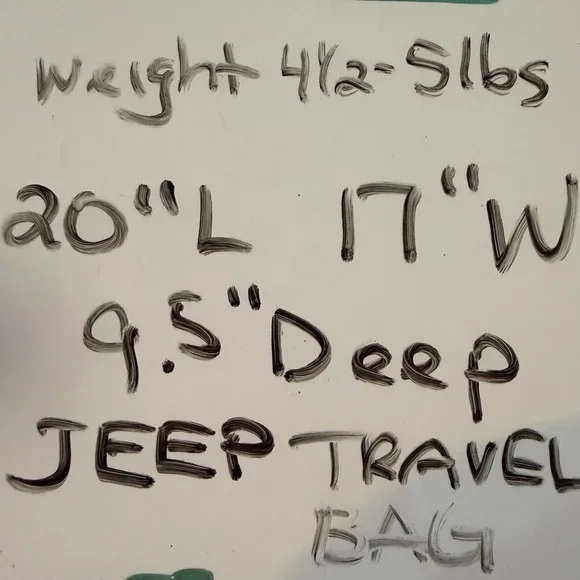 Weight 4 1/2- 5lbs
20"L 17"W
9.5" Deep
JEEP TRAVEL
BAG